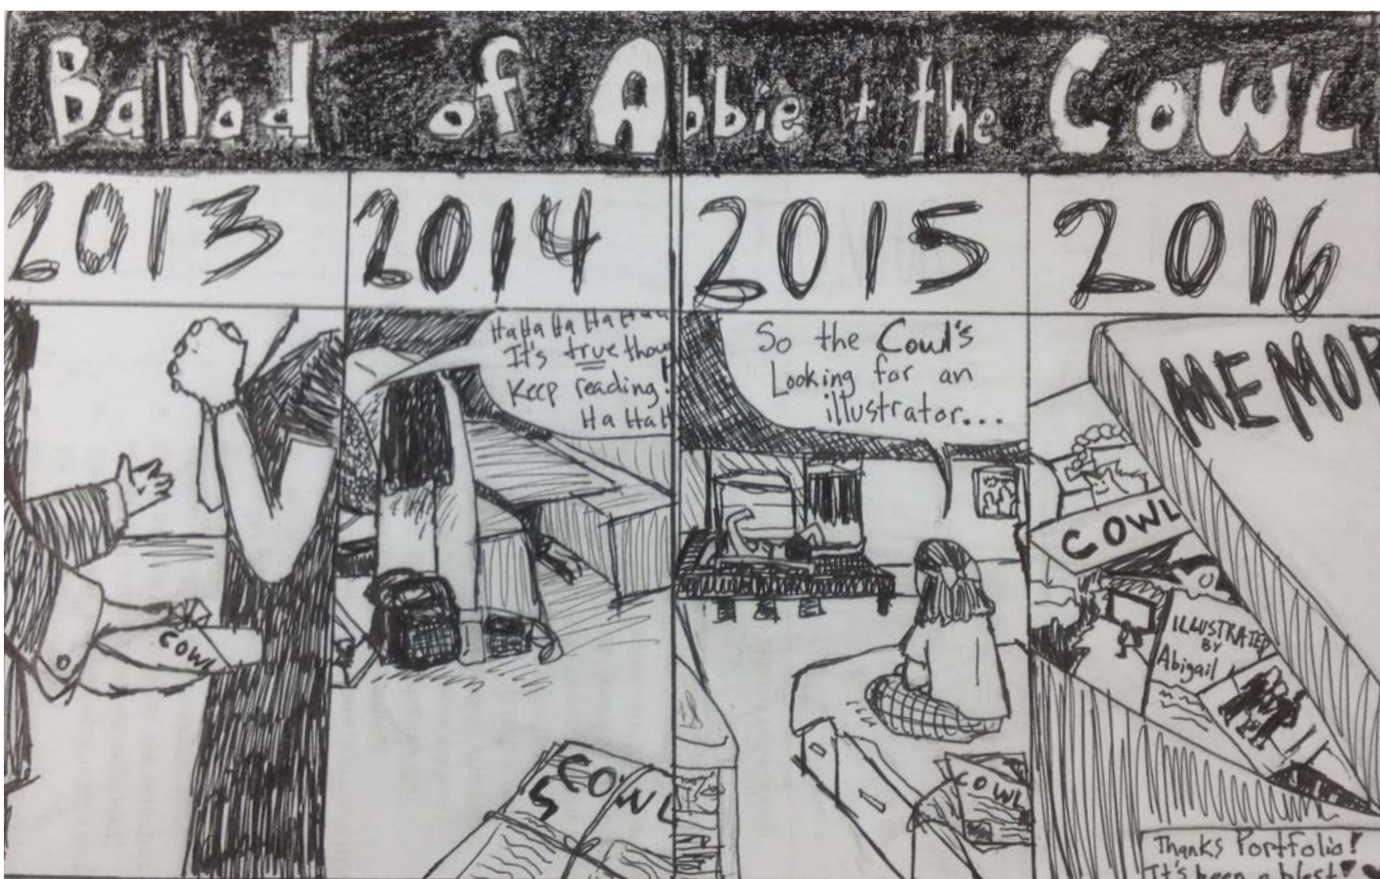 Ballad of Abbie + the COWL
2013
2014
2015
2016
COWL
Ha Ha Ha Ha Ha
It's true
Keep reading!
Ha Ha
COWL
So the Cowl's
Looking for an
illustrator...
COWL
MEMOR
COWL
ILLUSTRATED
BY
Abigail
Thanks Portfolio!
It's been a blast!